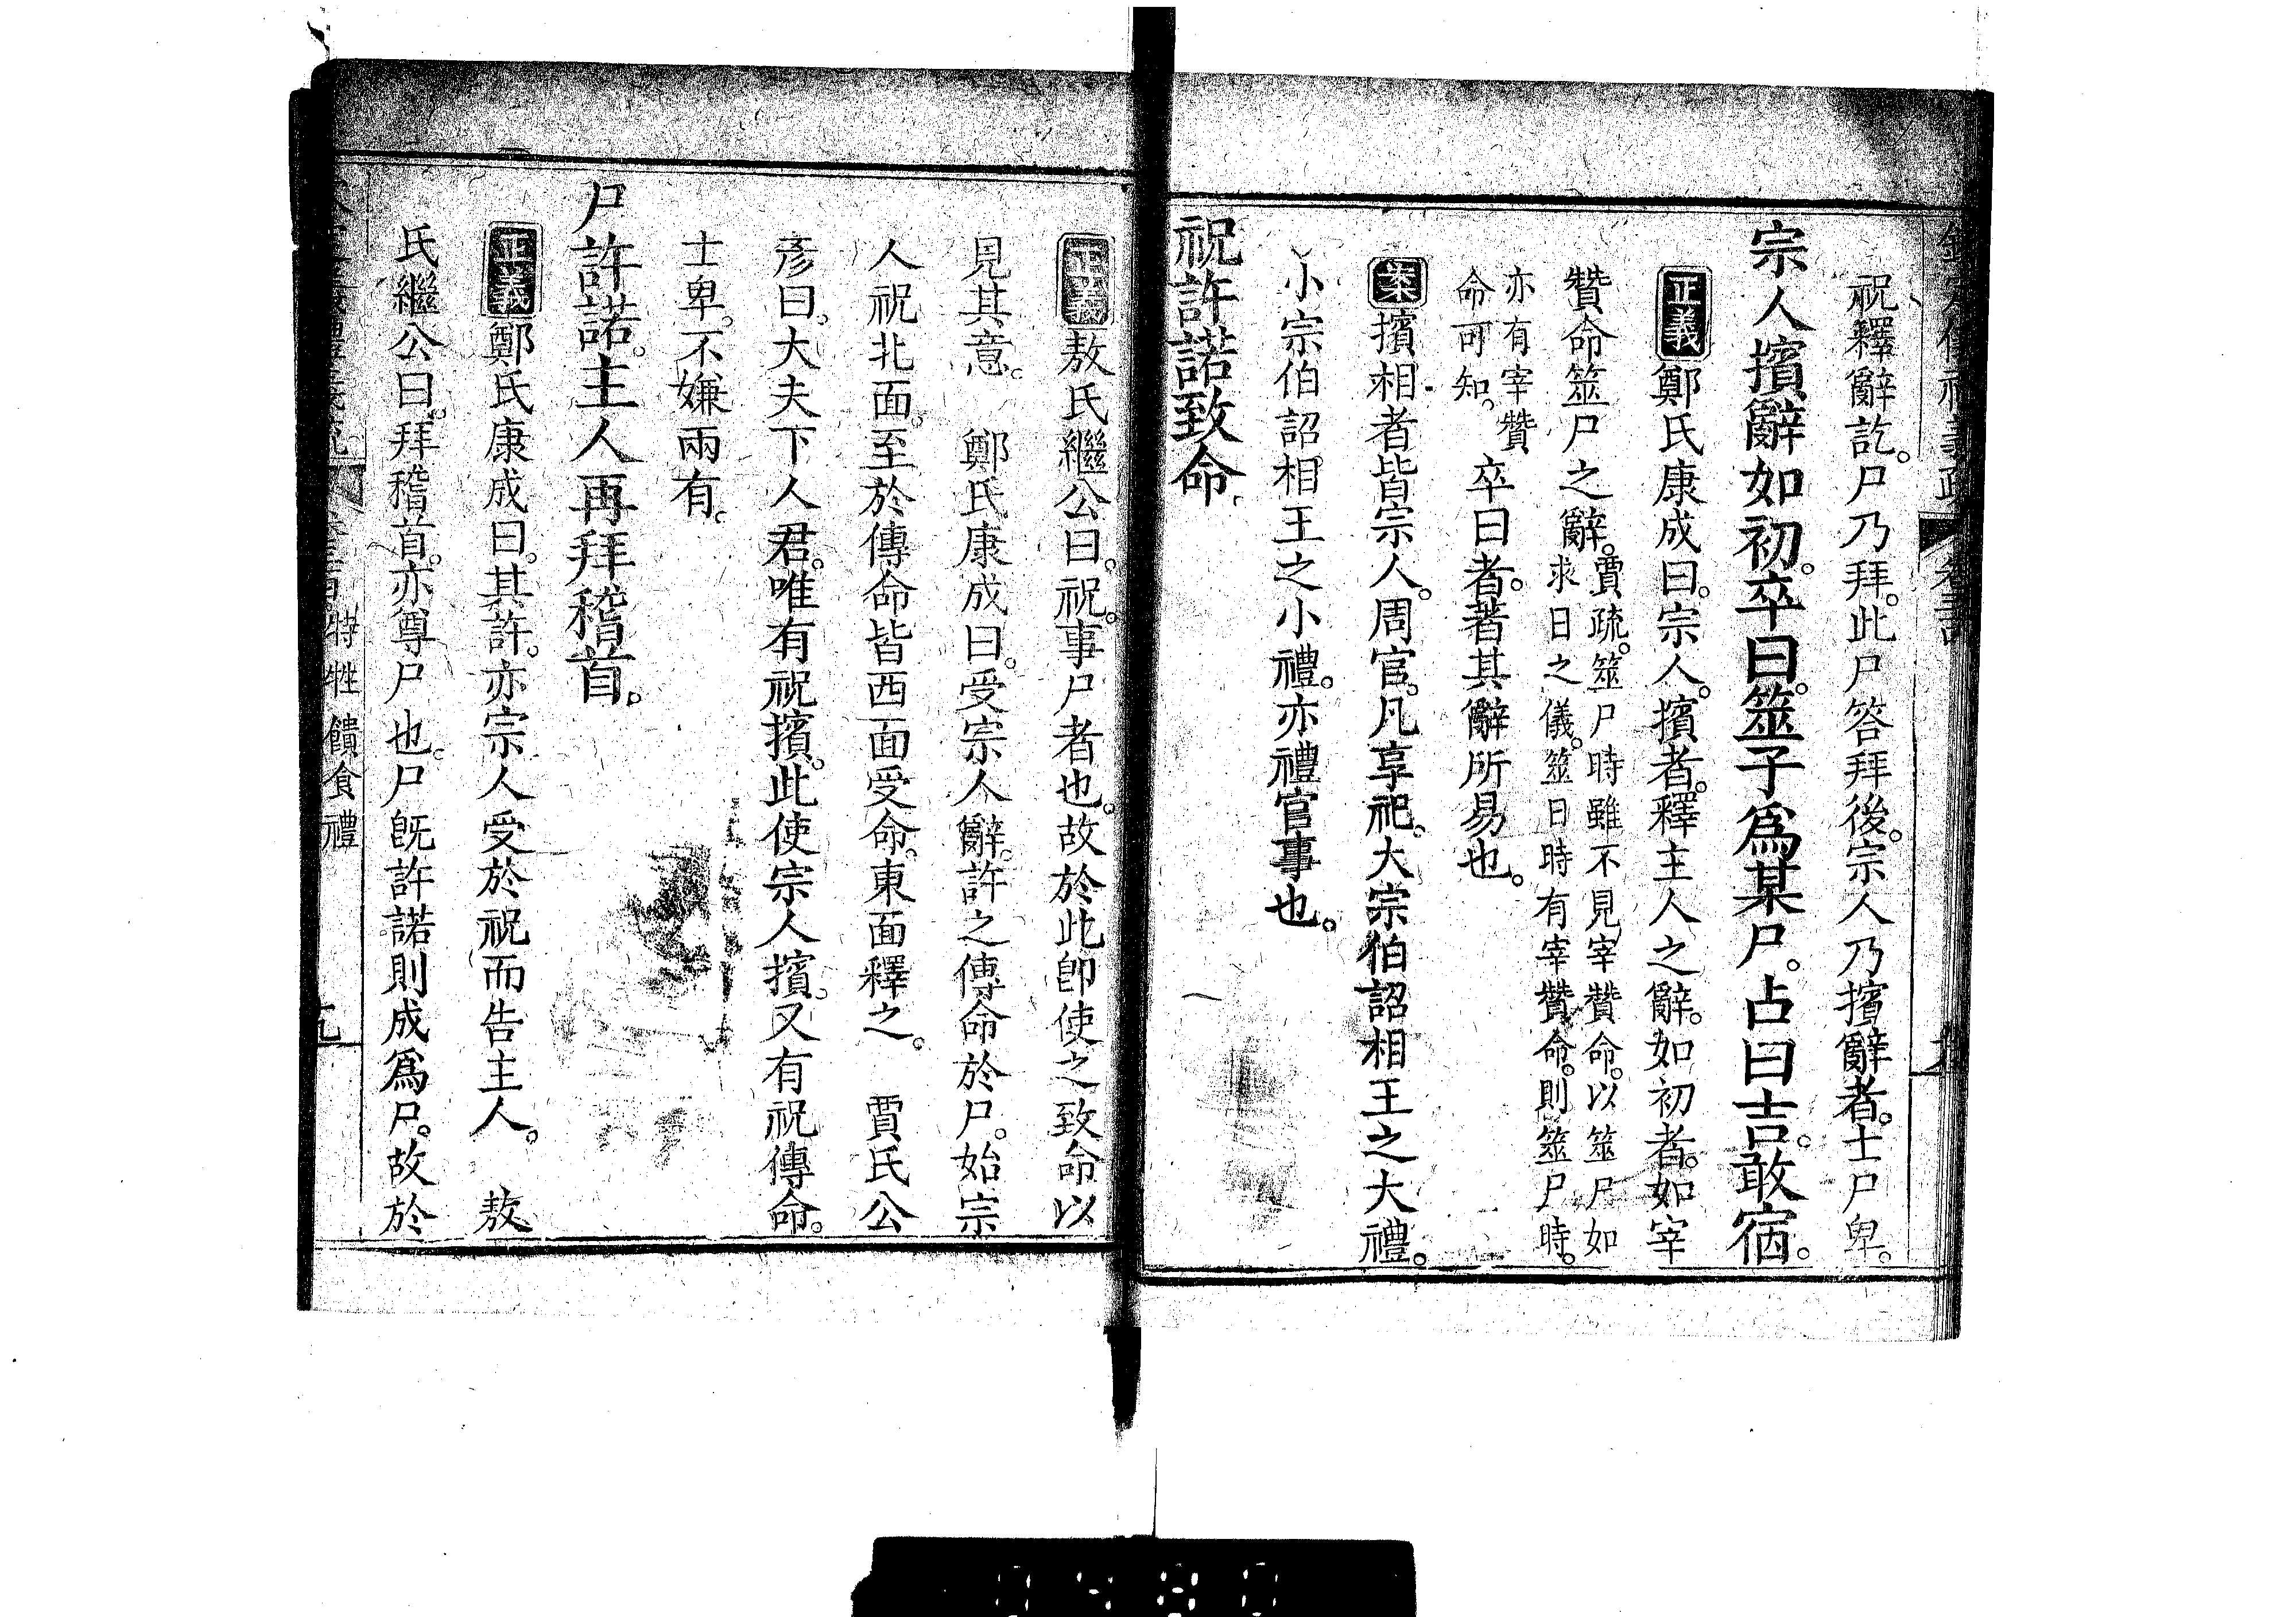 祝釋辭訖。尸乃拜。此尸答拜後。宗人乃擯辭者。士尸卑。
宗人擯辭如初。卒曰。筮子爲某尸。占曰吉。敢宿。
正義鄭氏康成曰。宗人。擯者。釋主人之辭。如初者。如宰
贊命筮尸之辭。賈疏。筮尸時雖不見宰贊命。以筮尸如
求日之儀。筮日時有宰贊命。則筮尸時。
亦有宰贊
命可知。卒曰者。著其辭所易也。
案擯相者皆宗人。周官。凡享祀。大宗伯詔相王之大禮。
小宗伯詔相王之小禮。亦禮官事也。
祝許諾致命
正義敖氏繼公曰。祝。事尸者也。故於此卽使之致命以
見其意。 鄭氏康成曰。受宗人辭。許之傳命於尸。始宗
人祝北面。至於傳命皆西面受命。東面釋之。 賈氏公
彥曰。大夫下人君。唯有祝擯。此使宗人擯。又有祝傳命。
士卑。不嫌兩有。
尸許諾。主人再拜稽首。
正義鄭氏康成曰。其許。亦宗人受於祝而告主人。 敖
氏繼公曰。拜稽首。亦尊尸也。尸旣許諾則成爲尸。故於
特牲饋食禮